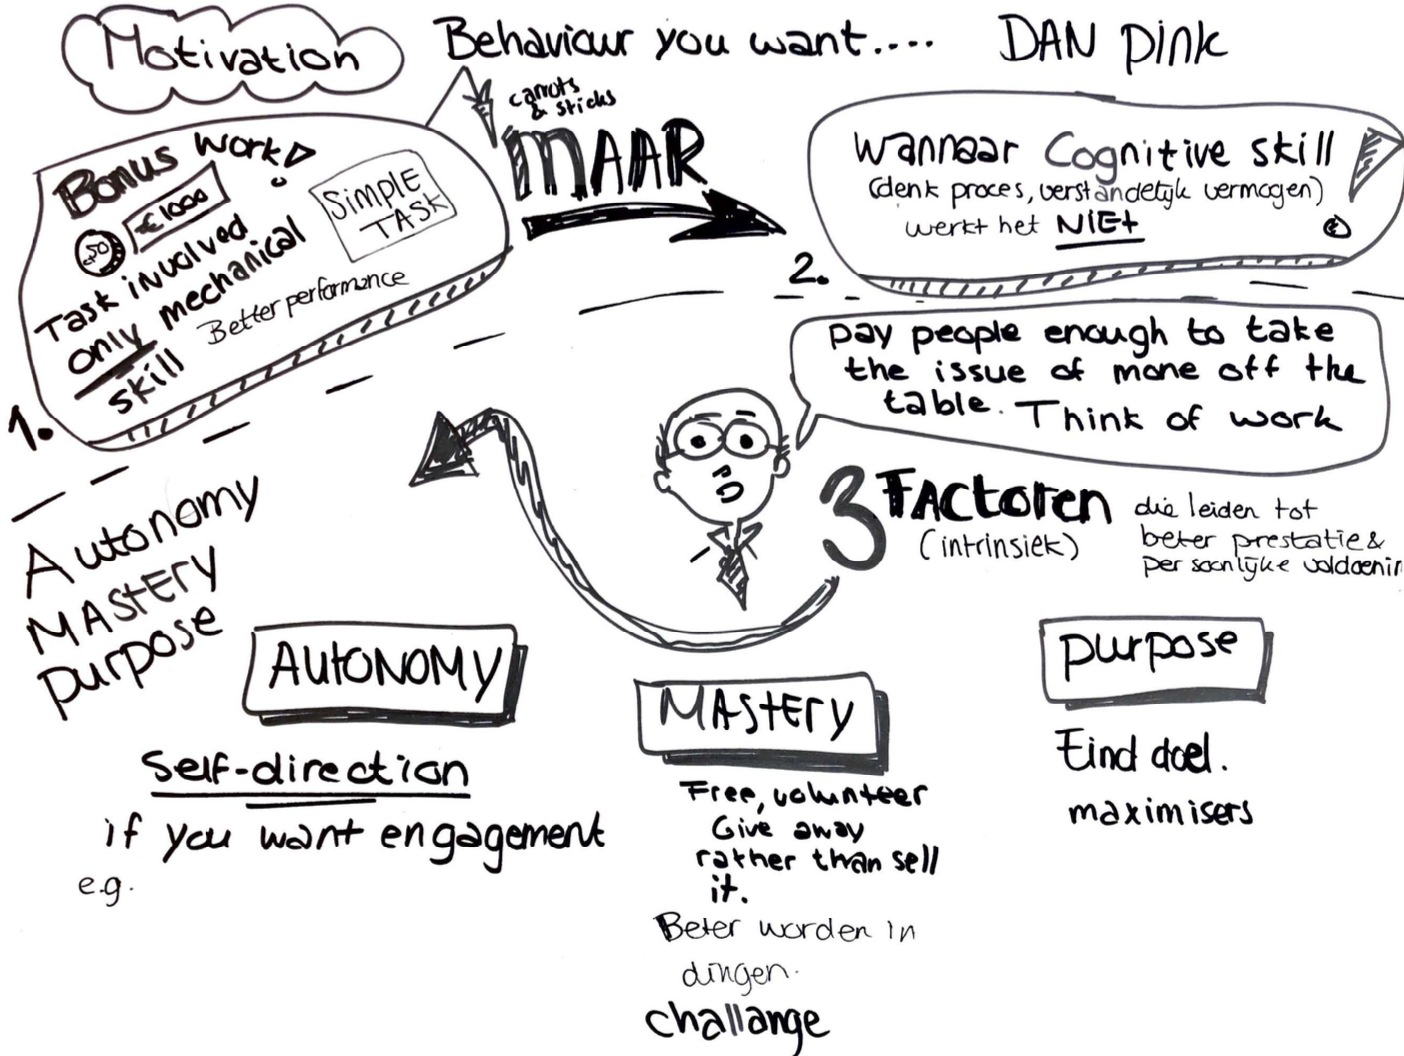 Motivation
Behaviour you want....
DAN Pink
carrots
& sticks
MAAR
Bonus Work
€1000
50
SIMPLE
TASK
Task involved
only mechanical
skill
Better performance
1.
wannaar Cognitive skill
(denk proces, verstandelijk vermogen)
werkt het NIEt
2.
pay people enough to take
the issue of mone off the
table. Think of work
3 FActoren
(intrinsiek)
die leiden tot
beter prestatie &
persoonlijke voldoenin
Autonomy
MAStERy
purpose
AUtONOMY
Self-direction
if you want engagement
e.g.
MAStERy
Free, volunteer
Give away
rather than sell
it.
Beter worden in
dingen.
challange
purpose
Eind doel.
maximisers